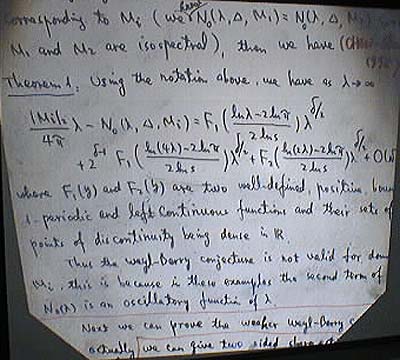 corresponding to Mi (we have N₀(λ, Δ, M₁) = N₀(λ, Δ, M₂)
M₁ and M₂ are isospectral), then we have
Theorem 1. Using the notation above, we have as λ→∞
|Mi|₂/4π λ - N₀(λ, Δ, Mi) = F₁((lnλ-2lnπ)/2lns) λ^δ/2
+ 2^δ-1 F₁((ln(4λ)-2lnπ)/2lns) λ^δ/2 + F₂((ln(2λ)-2lnπ)/2lns) λ^δ/2 + O(
where F₁(y) and F₂(y) are two well-defined, positive, boun
1-periodic and left continuous functions and their sets of
points of discontinuity being dense in ℝ.
Thus the Weyl-Berry conjecture is not valid for dom
Mi, this is because in these examples the second term of
N₀(λ) is an oscillatory function of λ
Next we can prove the weaker Weyl-Berry c
actually we can give two sided